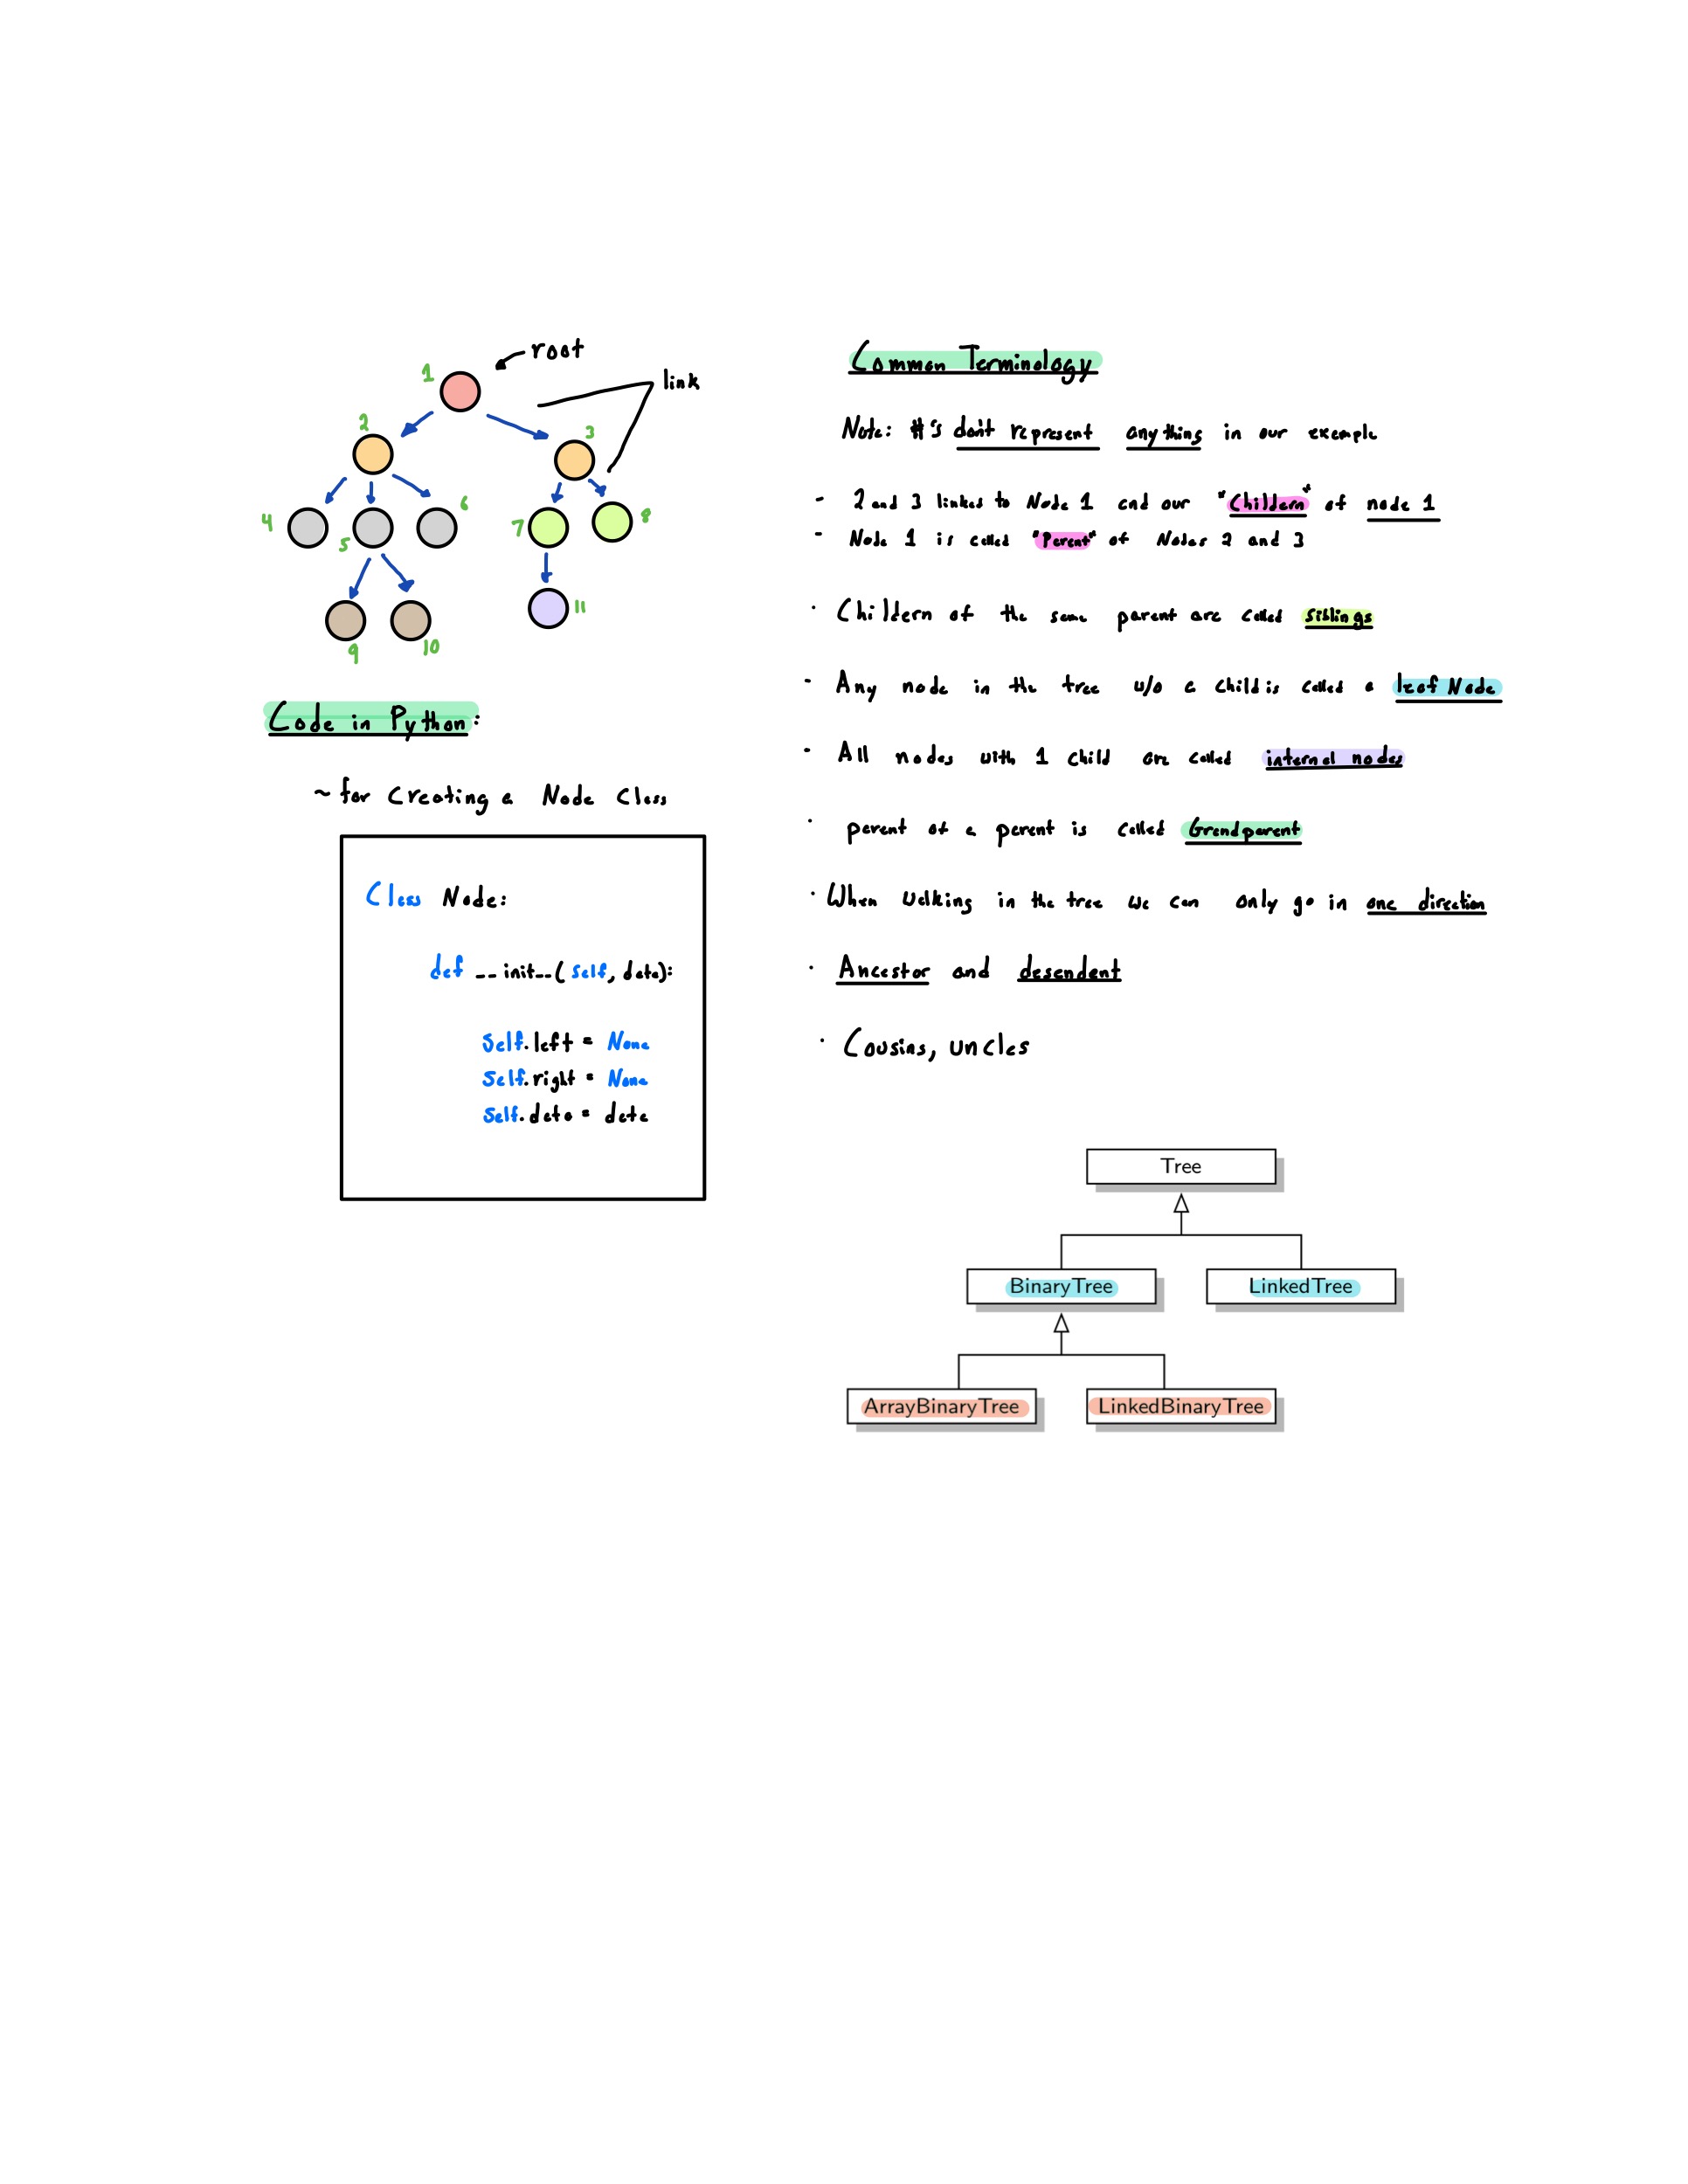 root
link
1
2
3
4
5
6
7
8
9
10
11
Code in Python:
~ for Creating a Node Class
Class Node:
def __init__(self, data):
Self.left = None
Self.right = None
Self.data = data
Common Terminology
Note: #'s don't represent anything in our example
- 2 and 3 linked to Node 1 and our "Childern" of node 1
- Node 1 is called "Parent" of Nodes 2 and 3
· Childern of the same parent are called siblings
- Any node in the tree w/o a child is called a leaf Node
- All nodes with 1 child are called internal nodes
· parent of a parent is called Grandparent
· When walking in the tree we can only go in one direction
· Ancestor and desendent
· Cousins, uncles
Tree
BinaryTree LinkedTree
ArrayBinaryTree LinkedBinaryTree